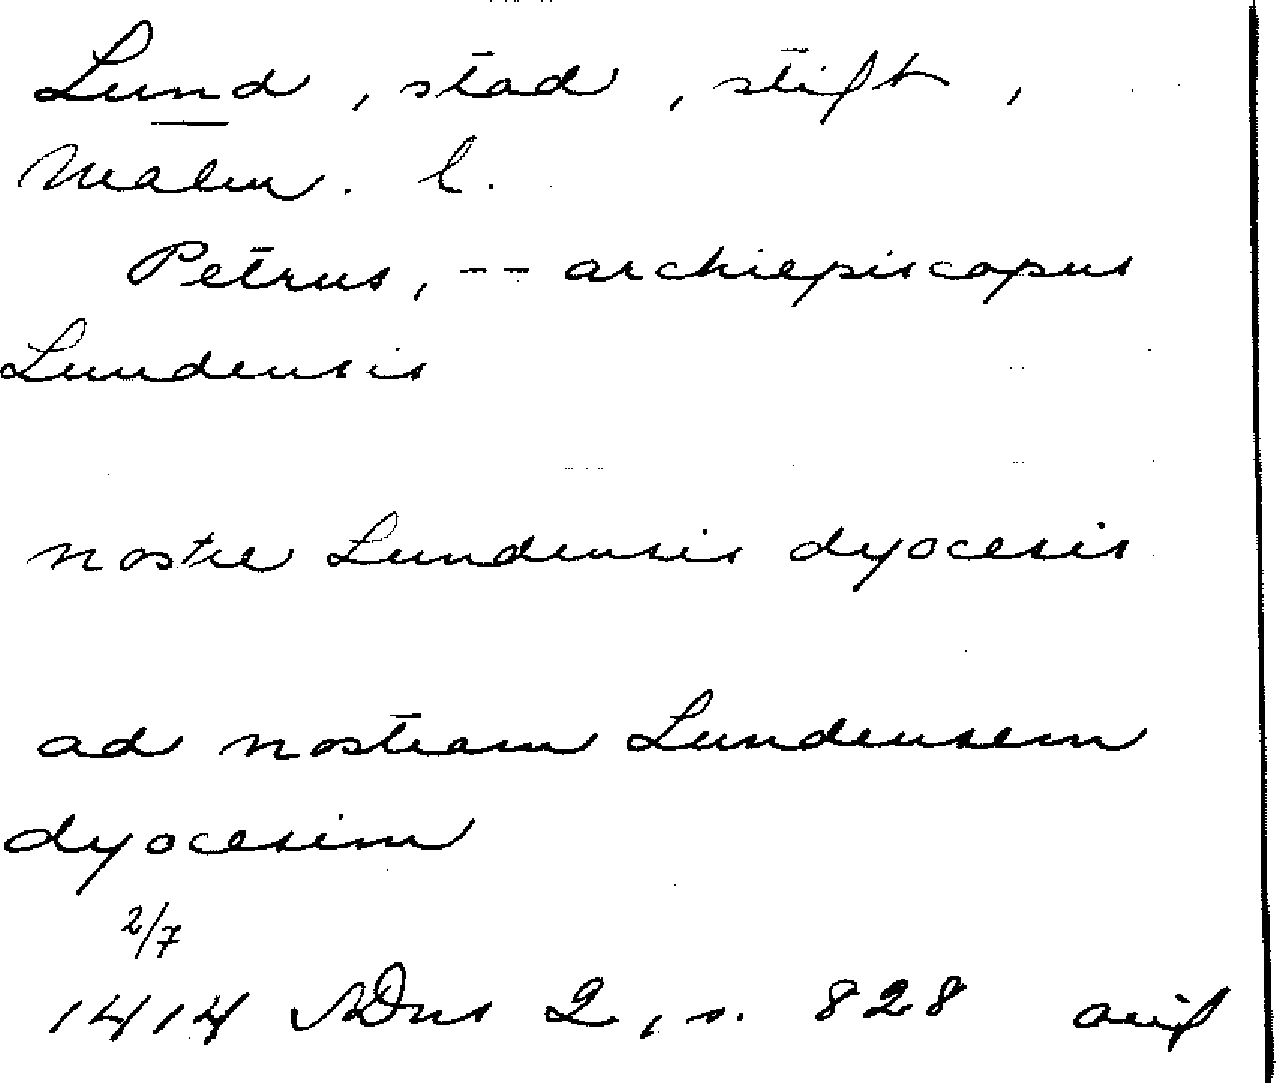 Lund, stad, stift,
Malm. l.
Petrus, -- archiepiscopus
Lundensis
nostre Lundensis dyocesis
ad nostram Lundensem
dyocesim
2/7
1414 SDns 2, s. 828 avs